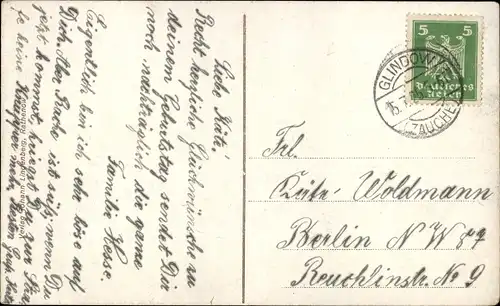 Liebe Käte!
Recht herzliche Glückwünsche zu
deinem Geburtstag sendet Dir
noch nachträglich die ganze
Familie Hesse.
Eigentlich bin ich sehr böse auf
Dich. Aber Rache ist süß, wenn Du
jetzt kommst, kriegst Du zur Strafe
keine mehr,
5 5
Deutsches
Reich
GLINDOW
ZAUCHE
Frl.
Käte Woldmann
Berlin N W 87
Reuchlinstr. No 9